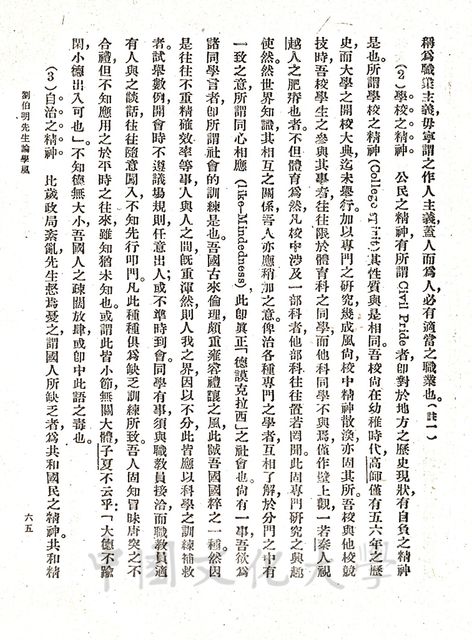 稱爲職業主義毋寧謂之作人主義蓋人而爲人必有適當之職業也。(註一)
(2)學校之精神　公民之精神有所謂Civil Pride者卽對於地方之歷史現狀有自負之精神
是也。所謂學校之精神(College Spirit)其性質與是相同。吾校尙在幼稚時代高師僅有五六年之歷
史而大學之開校大典迄未舉行。加以專門之硏究幾成風尙校中精神散渙亦固其所。吾校與他校競
技時吾校學生之參與其事者往往限於體育科之同學而他科同學不與焉僅作壁上觀一若秦人視
越人之肥瘠也者不但體育爲然凡校中涉及一部科者他部科往往置若罔聞。此固專門硏究之興趣
使然然世界知識其相互之關係吾人亦應稍加之意俾治各種專門之學者互相了解於分門之中有
一致之意所謂同心相應(Like-Mindedness)此卽眞正「德謨克拉西」之社會也。尙有一事吾欲爲
諸同學言者卽所謂社會的訓練是也。吾國古來倫理頗重雍容禮讓之風此誠吾國國粹之一種然因
是往往不重精確效率等事人與人之間旣重渾然則人我之界因以不分此皆應以科學之訓練補救
者。試舉數例開會時不遵議場規則任意出入；或不準時到會。同學有事須與職教員接洽而職教員適
有人與之談話往往隨意闖入不知先行叩門。凡此種種俱爲缺乏訓練所致。吾人固知冒昧唐突之不
合禮但不知應用之於平時之往來雖知猶未知也。或謂此皆小節無關大體子夏不云乎：「大德不踰
閑小德出入可也」。不知德無大小吾國人之疎闊放肆或卽中此語之毒也。
(3)自治之精神　比歲政局紊亂先生惄焉憂之謂國人所缺乏者爲共和國民之精神。共和精
劉伯明先生論學風
六五
中國文化大學